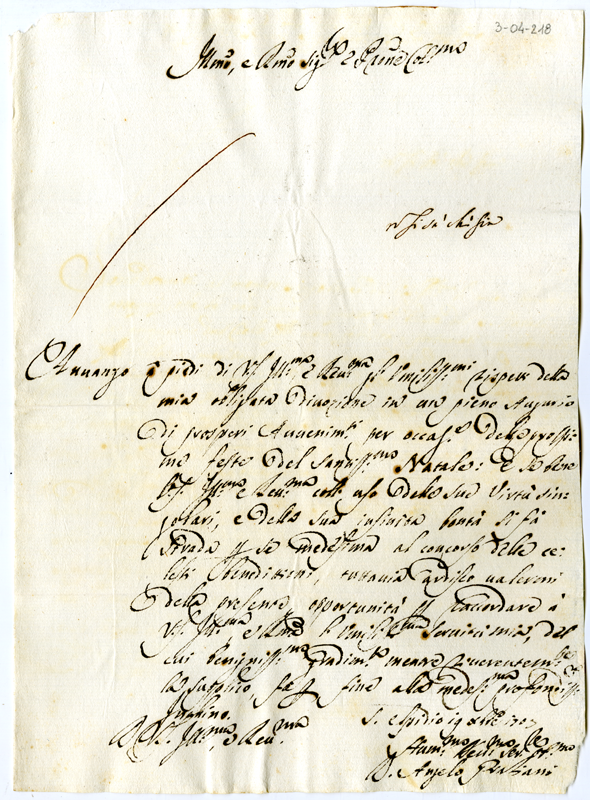 3-04-218
Illmo, e Rmo Sig.re e Prone Col.mo
si sà chi sia
Avvanzo a piedi di VS. Ill.ma e Reu.ma gl'Umiliss.mi rispetti della
mia obligata Divozione in un pieno Augurio
di prosperi Avvenim.ti per occas.e delle prossi-
me feste del Santiss.mo Natale: e se bene
VS. Ill.ma e Reu.ma coll'uso delle sue Virtù sin-
golari, e della sua infinita bontà si fà
strada p se medesima al concorso delle ce-
lesti benedizioni, tuttavia ardisco valermi
della presente opportunità p raccordare à
VS. Ill.ma, e Rma l'Umiliss.ma servitù mia, del
cui benigniss.mo gradim.to mentre riverentem.te
la supplico, fò fine alla medes.ma profondiss.te
inchino.
D VS. Ill.ma, e Reu.ma
S. Elpidio 19 Xbre
Hum.mo Ser.
D. Angelo Graziani